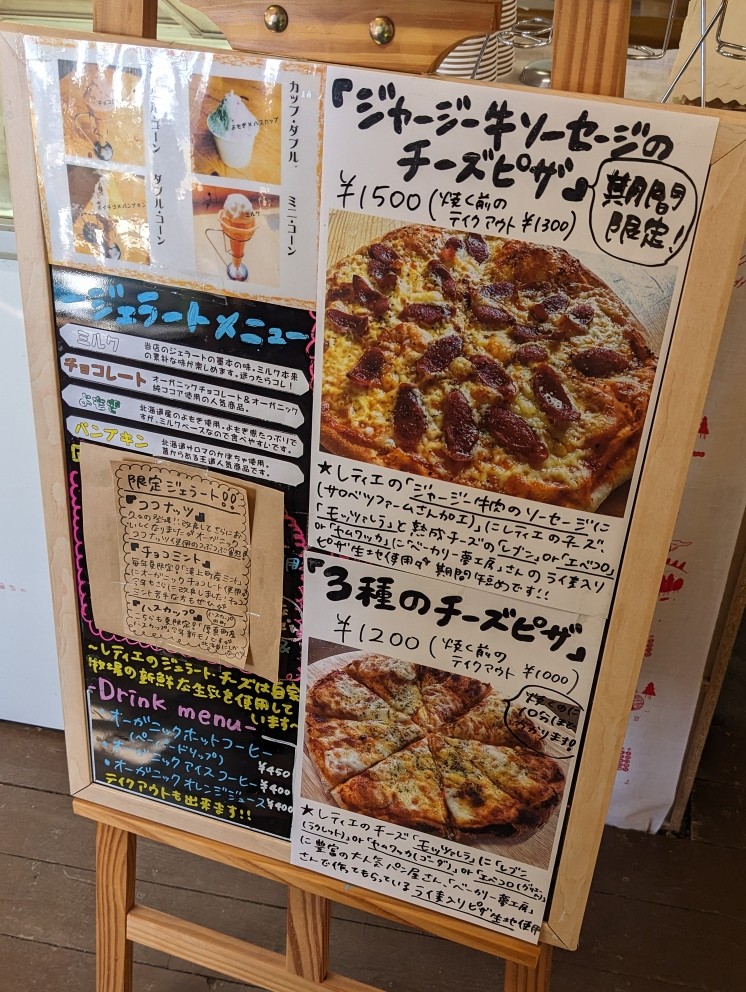 カップ・ダブル・
ミニ・コーン
ダブル・コーン
チョコ
よもぎ×ハスカップ
ミルク
ジェラートメニュー
ミルク
当店のジェラートの基本の味。ミルク本来
の素朴な味が楽しめます。迷ったらコレ!
チョコレート
オーガニックチョコレート&オーガニック
純ココア使用の人気商品。
よもぎ
北海道産のよもぎ使用。よもぎ感たっぷりで
すが、ミルクベースなので食べやすいです。
パンプキン
北海道サロマのかぼちゃ使用。
昔からある王道人気商品です。
限定ジェラート!!
『ココナッツ』
『チョコミント』
『ハスカップ』
~レティエのジェラート・チーズは自家
牧場の新鮮な生乳を使用して
います~
-Drink menu-
・オーガニックホットコーヒー
(ペーパードリップ)
¥450
・オーガニックアイスコーヒー
¥400
・オーガニックオレンジジュース
¥400
テイクアウトも出来ます!!
『ジャージー牛ソーセージの
チーズピザ』
期間
限定!
¥1500(焼く前の
テイクアウト ¥1300)
★レティエの「ジャージー牛肉のソーセージ」
(サロベツファームさん加工)にレティエのチーズ、
「モッツァレラ」と熟成チーズの「レブン」or「エベコロ」
or「ヤムワッカ」に「ベーカリー夢工房」さんのライ麦入り
ピザ生地使用 期間短めです!!
『3種のチーズピザ』
¥1200(焼く前の
テイクアウト ¥1000)
焼くのに
10分ほど
かかります!
★レティエのチーズ「モッツァレラ」に「レブン
(ラクレット)」or「ヤムワッカ(ゴーダ)」or「エベコロ
に豊富の大人気パン屋さん、「ベーカリー夢工房」
さんで作ってもらっているライ麦入りピザ生地使用